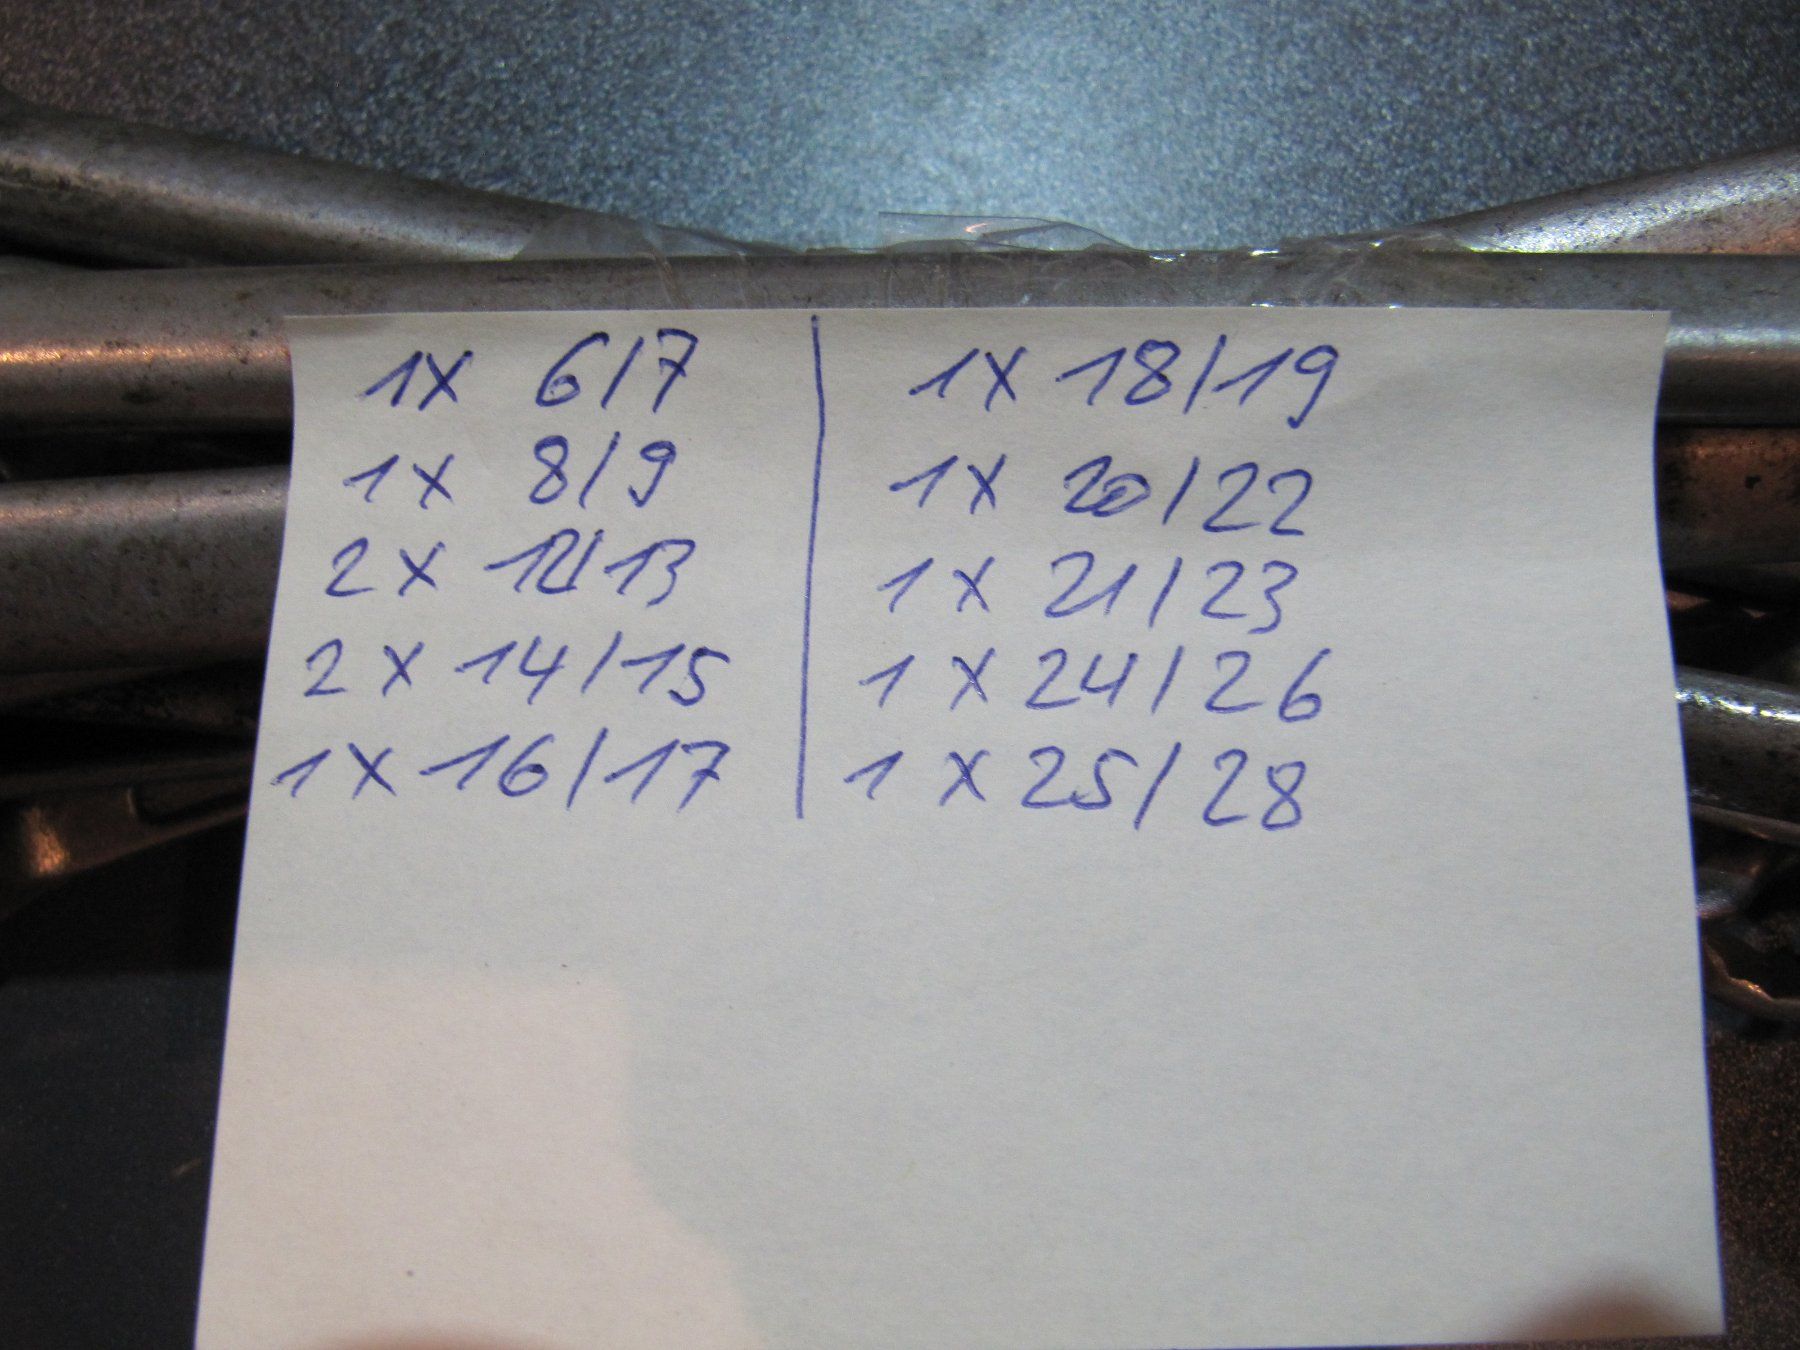 1x 6/7
1x 8/9
2x 12/13
2x 14/15
1x 16/17
1x 18/19
1x 20/22
1x 21/23
1x 24/26
1x 25/28